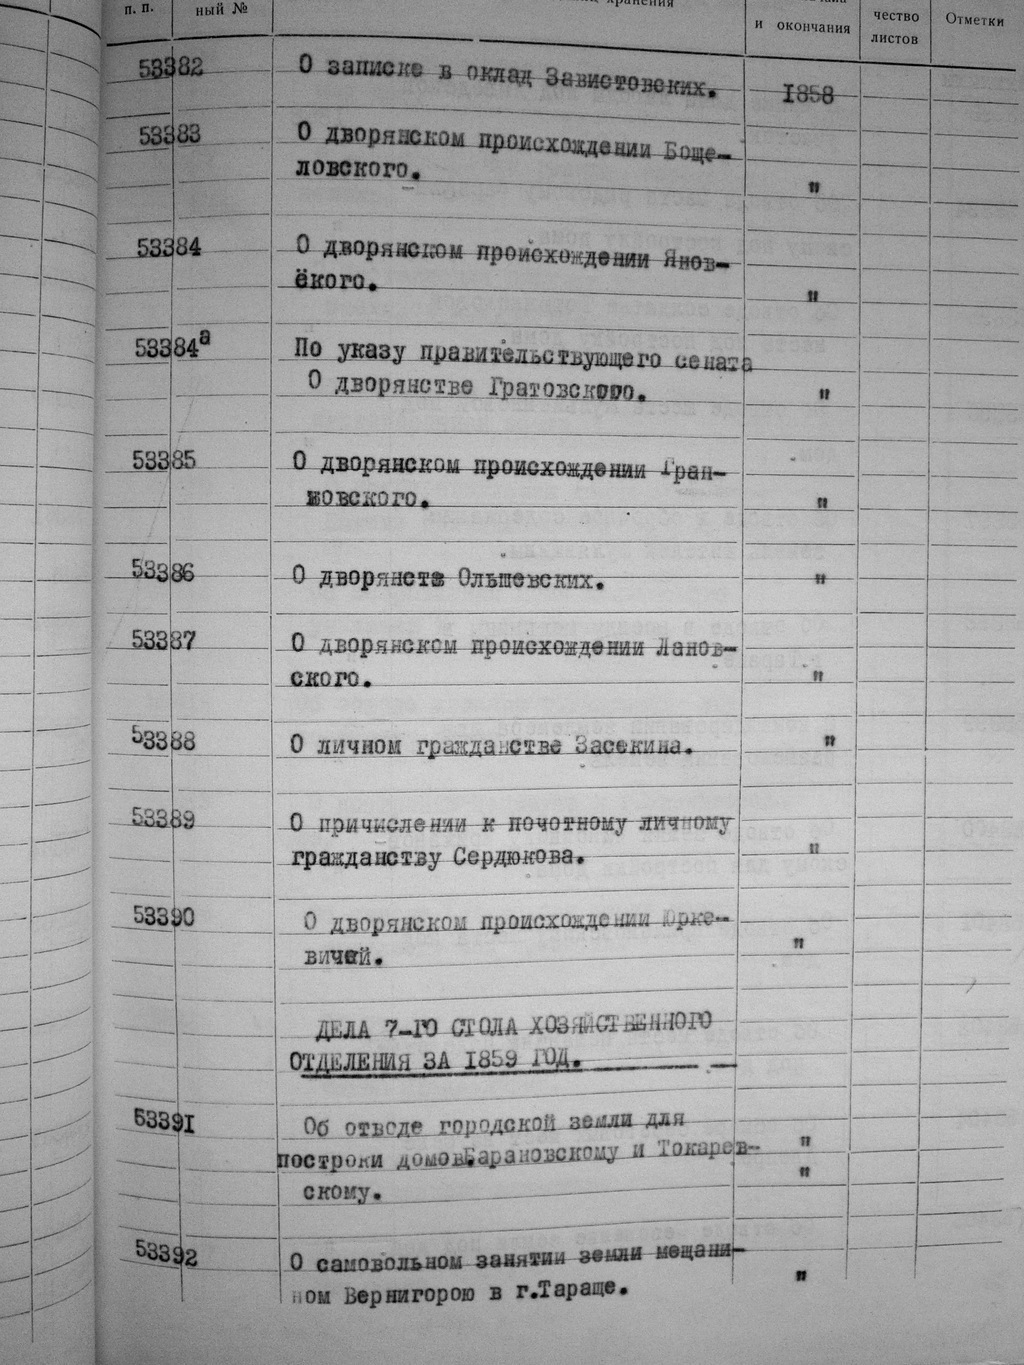 п. п.
ный №
хранения
и окончания
чество
листов
Отметки
53382 О записке в оклад Завистовских. 1858
53383 О дворянском происхождении Боще-
ловского. "
53384 О дворянском происхождении Янов-
ёкого. "
53384а По указу правительствующего сената
О дворянстве Гратовского. "
53385 О дворянском происхождении Гран-
жовского. "
53386 О дворянств Ольшевских. "
53387 О дворянском происхождении Ланов-
ского. "
53388 О личном гражданстве Засекина. "
53389 О причислении к почотному личному
гражданству Сердюкова. "
53390 О дворянском происхождении Юрке-
вичей. "
ДЕЛА 7-ГО СТОЛА ХОЗЯЙСТВЕННОГО
ОТДЕЛЕНИЯ ЗА 1859 ГОД.
53391 Об отводе городской земли для "
построки домов.Барановскому и Токарев- "
скому.
53392 О самовольном занятии земли мещани-
ном Вернигорою в г.Тараще. "